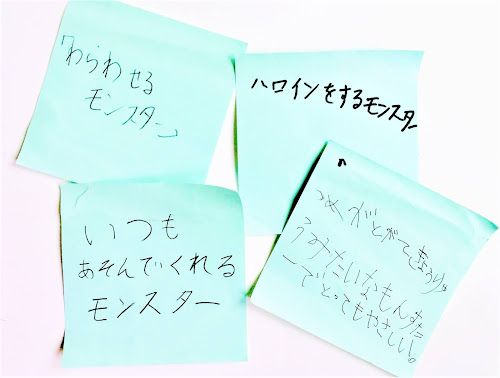 「わらわせる
モンスター」
ハロインをするモンスター
いつも
あそんでくれる
モンスター
つめがとがて
うみたいなもんすた
ーでとってもやさしい。